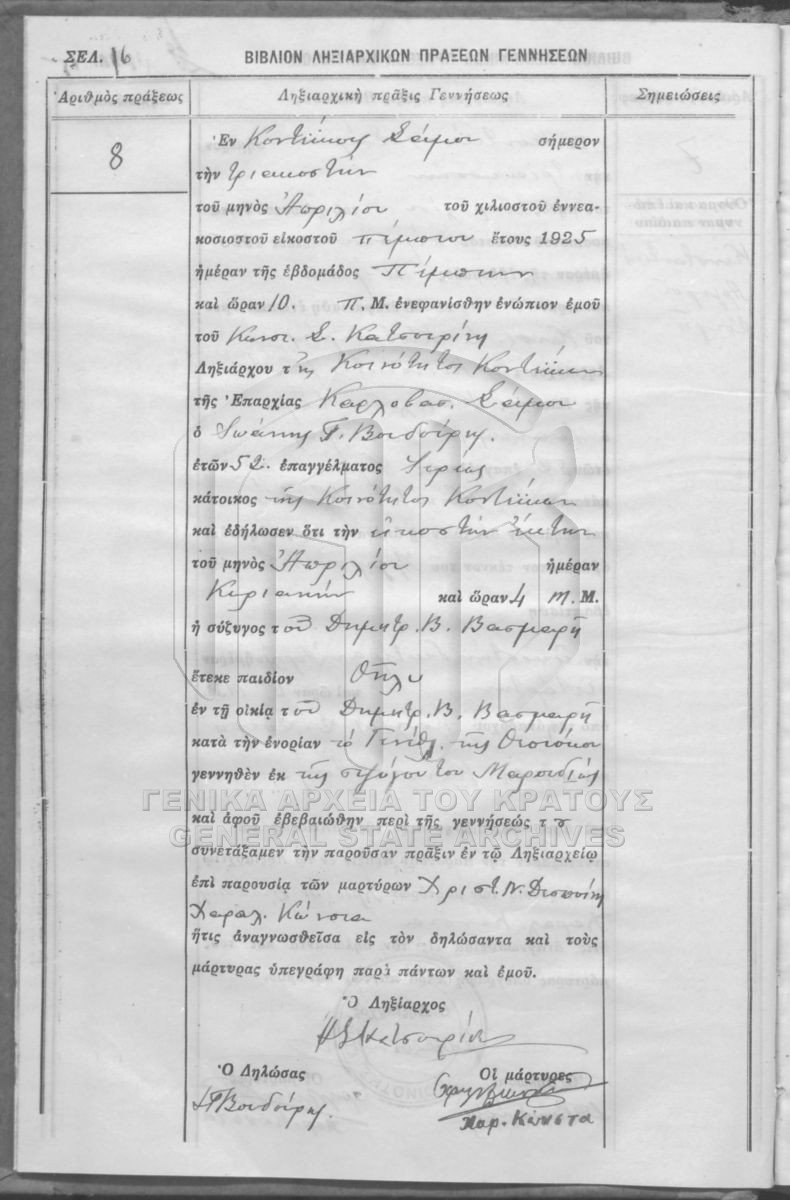 ΣΕΛ. 16
ΒΙΒΛΙΟΝ ΛΗΞΙΑΡΧΙΚΩΝ ΠΡΑΞΕΩΝ ΓΕΝΝΗΣΕΩΝ
Ἀριθμὸς πράξεως
Ληξιαρχικὴ πρᾶξις Γεννήσεως
Σημειώσεις
8
Ἐν Κοντέϊκοις Σάμου σήμερον
τὴν τριακοστὴν
τοῦ μηνὸς Ἀπριλίου τοῦ χιλιοστοῦ ἐννεα-
κοσιοστοῦ εἰκοστοῦ πέμπτου ἔτους 1925
ἡμέραν τῆς ἑβδομάδος Πέμπτην
καὶ ὥραν 10. π. Μ. ἐνεφανίσθην ἐνώπιον ἐμοῦ
τοῦ Κωνσ. Σ. Κατσουρίνη
Ληξιάρχου τῆς Κοινότητος Κοντεΐκων
τῆς Ἐπαρχίας Καρλοβασ. Σάμου
ὁ Ἰωάννης Γ. Βουδούρης.
ἐτῶν 52. ἐπαγγέλματος Ἱερεὺς
κάτοικος τῆς Κοινότητος Κοντεΐκων
καὶ ἐδήλωσεν ὅτι τὴν εἰκοστὴν ἕκτην
τοῦ μηνὸς Ἀπριλίου ἡμέραν
Κυριακὴν καὶ ὥραν 4 π. Μ.
ἡ σύζυγος τοῦ Δημητρ. Β. Βασμαρῆ
ἔτεκε παιδίον θῆλυ
ἐν τῇ οἰκίᾳ τοῦ Δημητρ. Β. Βασμαρῆ
κατὰ τὴν ἐνορίαν τὸ Γενέθλ. τῆς Θεοτόκου
γεννηθὲν ἐκ τῆς συζύγου του Μαρουδιᾶς
ΓΕΝΙΚΑ ΑΡΧΕΙΑ ΤΟΥ ΚΡΑΤΟΥΣ
καὶ ἀφοῦ ἐβεβαιώθην περὶ τῆς γεννήσεώς τ
GENERAL STATE ARCHIVES
συνετάξαμεν τὴν παροῦσαν πρᾶξιν ἐν τῷ Ληξιαρχείῳ
ἐπὶ παρουσίᾳ τῶν μαρτύρων Χριστ. Ν.
Χαραλ. Κώνστα
ἥτις ἀναγνωσθεῖσα εἰς τὸν δηλώσαντα καὶ τοὺς
μάρτυρας ὑπεγράφη παρὰ πάντων καὶ ἐμοῦ.
Ὁ Ληξίαρχος
Ὁ Δηλώσας
Οἱ μάρτυρες
Βουδούρης.
Χαρ. Κώνστα